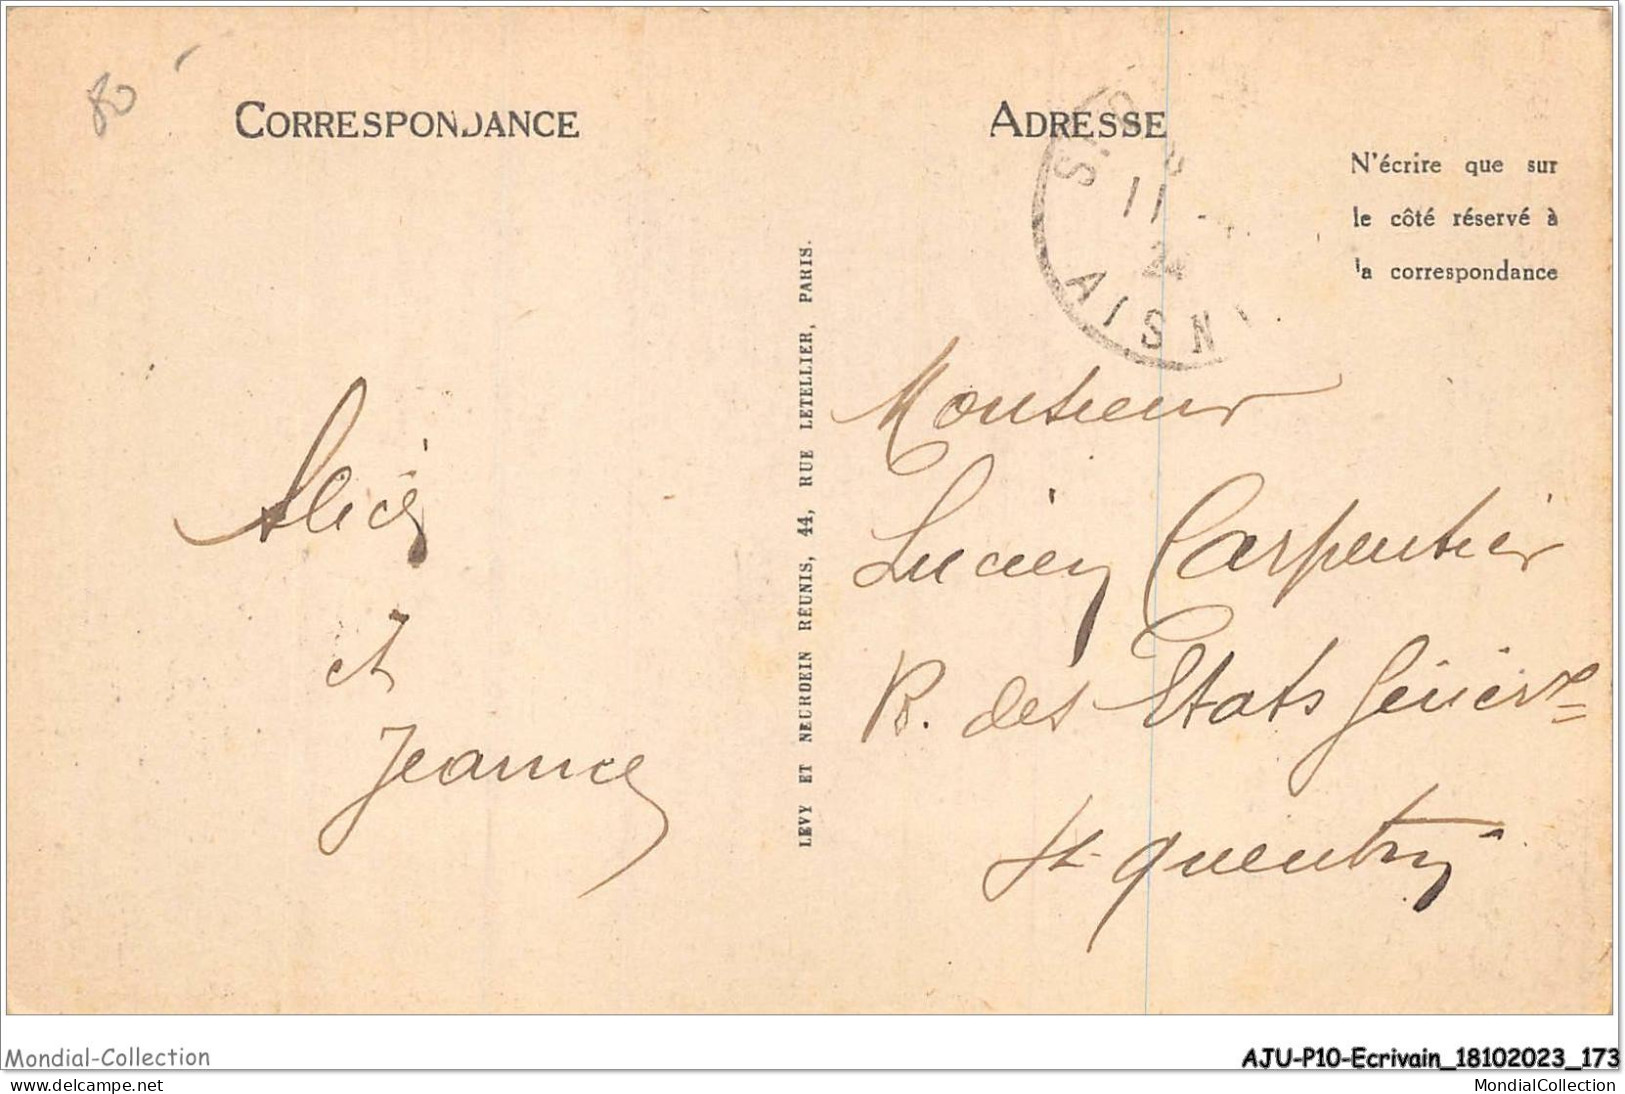 80
CORRESPONDANCE
ADRESSE
N'écrire que sur
le côté réservé à
la correspondance
11
24
AISN
LEVY ET NEURDEIN REUNIS, 44, RUE LETELLIER, PARIS.
Alice
et
Jeanne
Monsieur
Lucien Carpentier
R. des Etats Génér^x
St-Quentin
Mondial-Collection
AJU-P10-Ecrivain_18102023_173
www.delcampe.net
MondialCollection